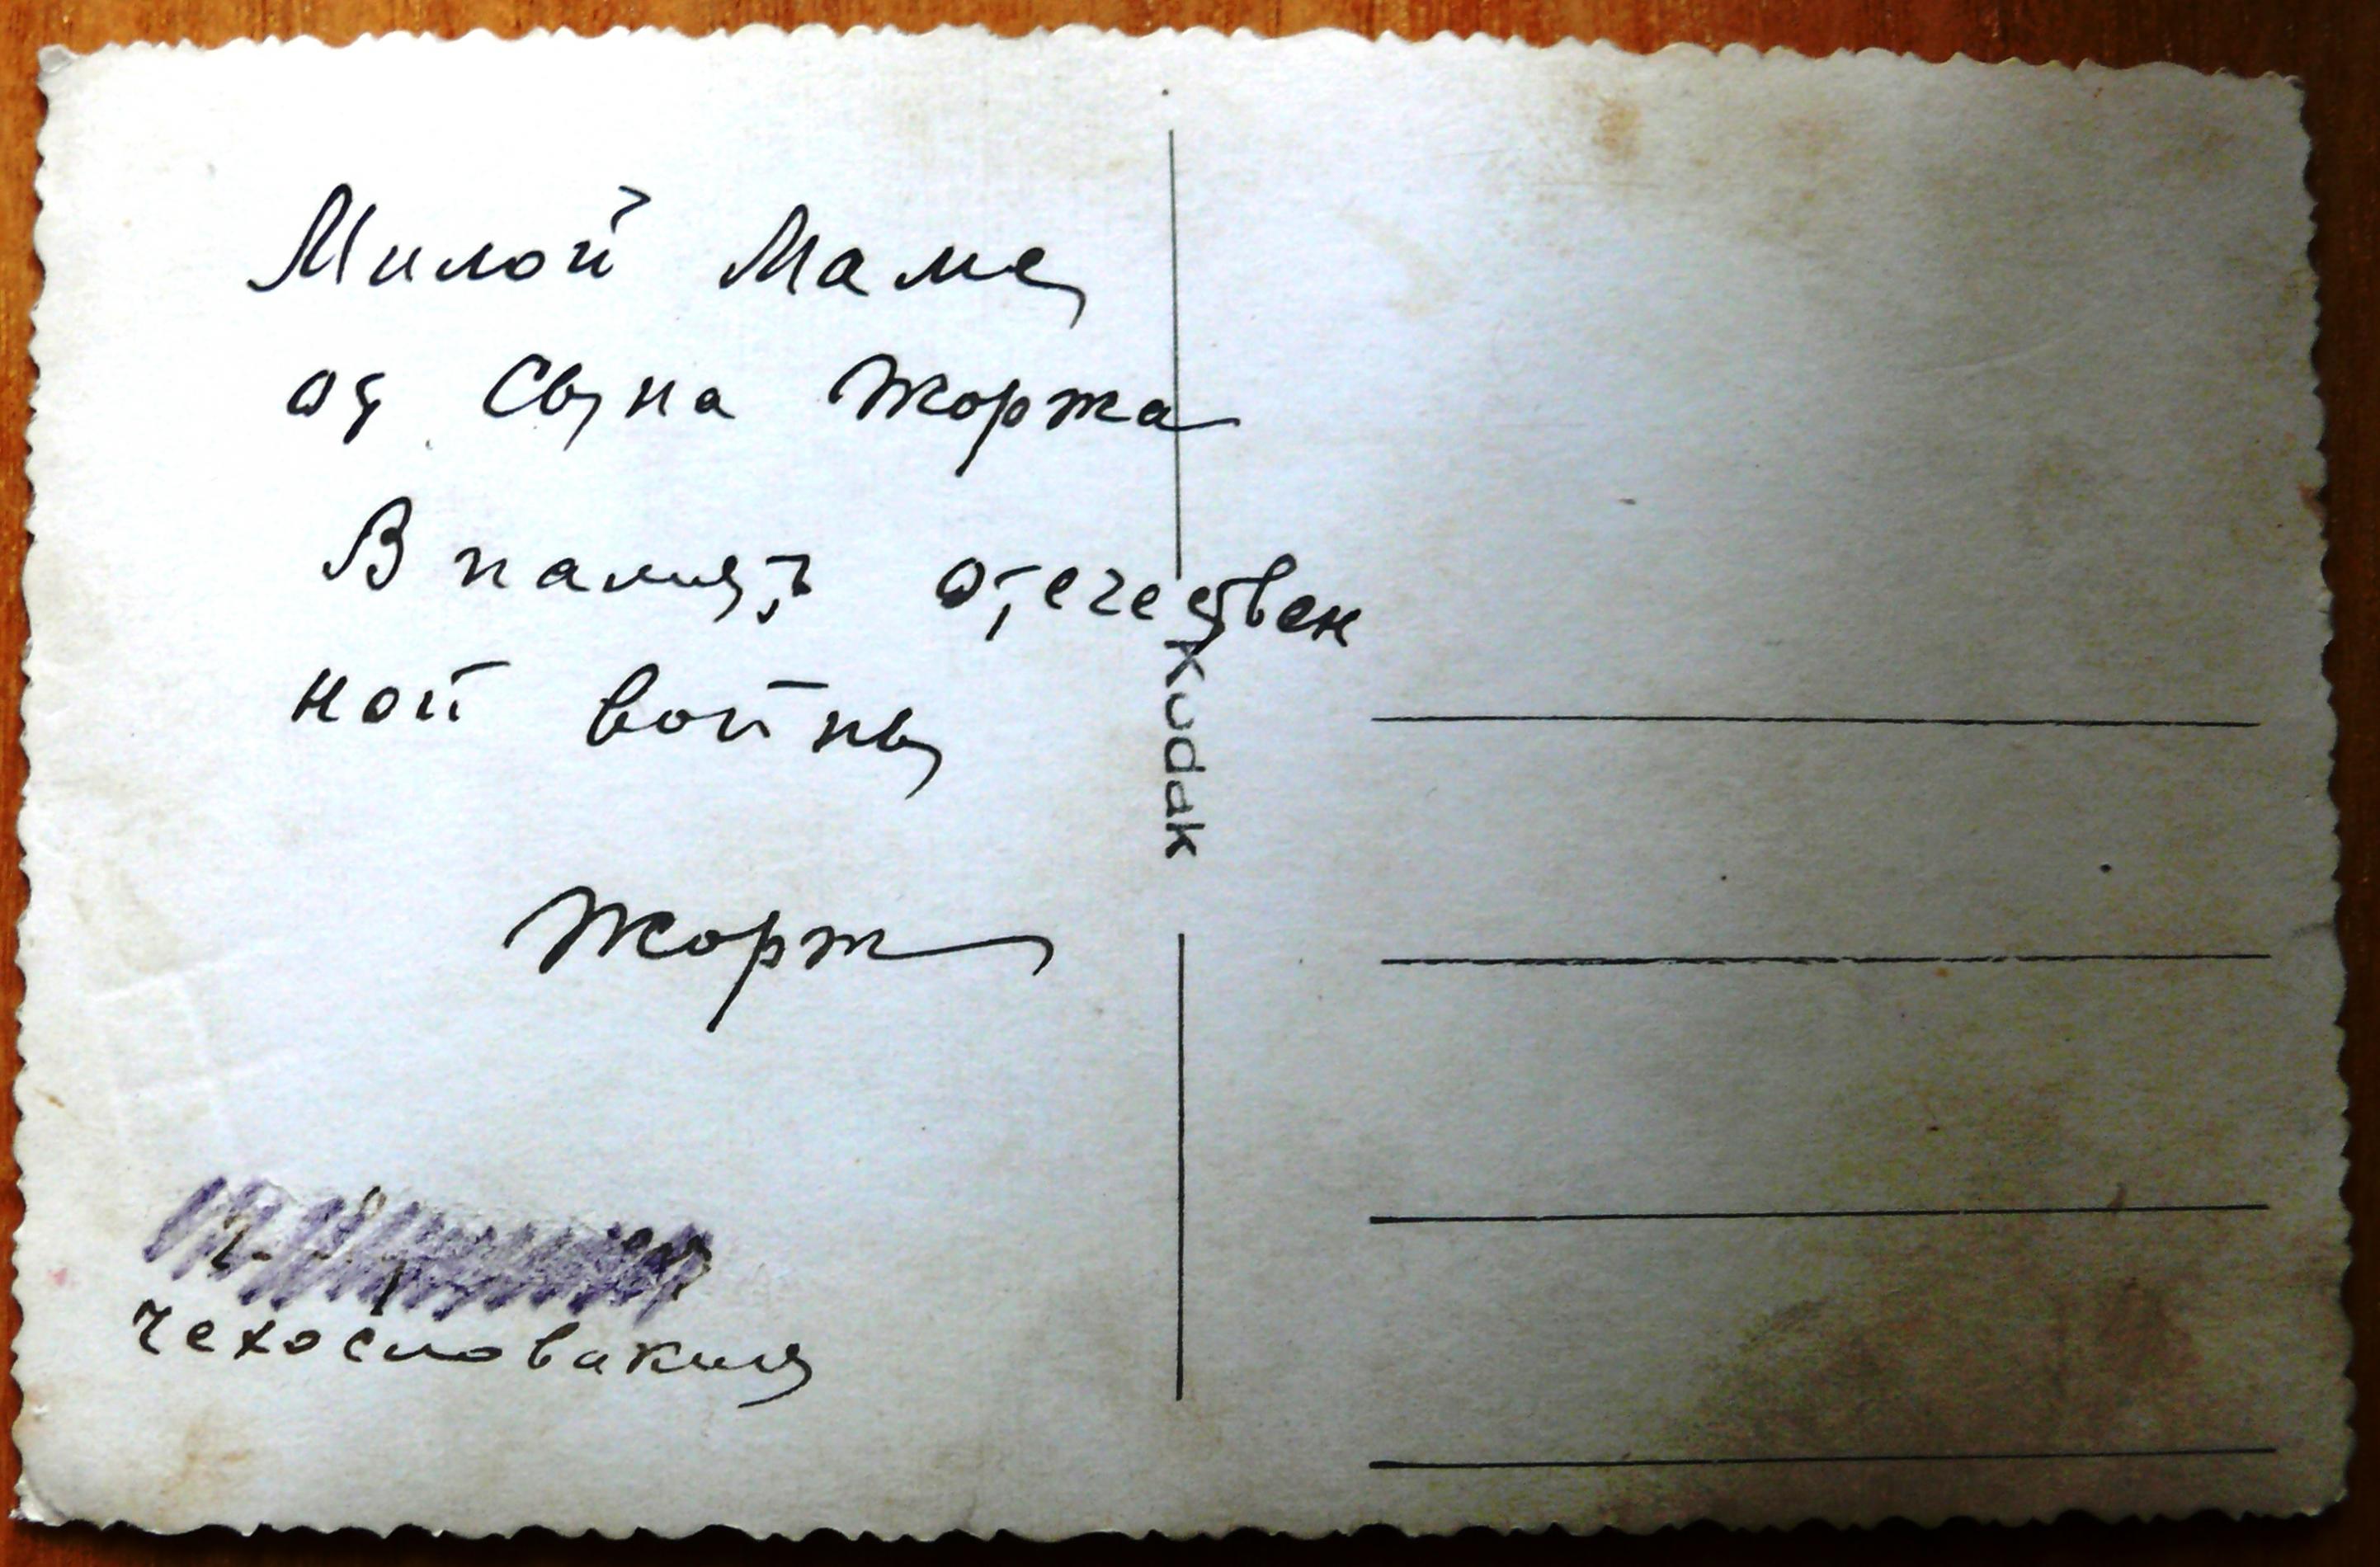 Милой Маме
от сына Жоржа
В память отечествен
ной войны
Жорж
Чехословакия
Kodak